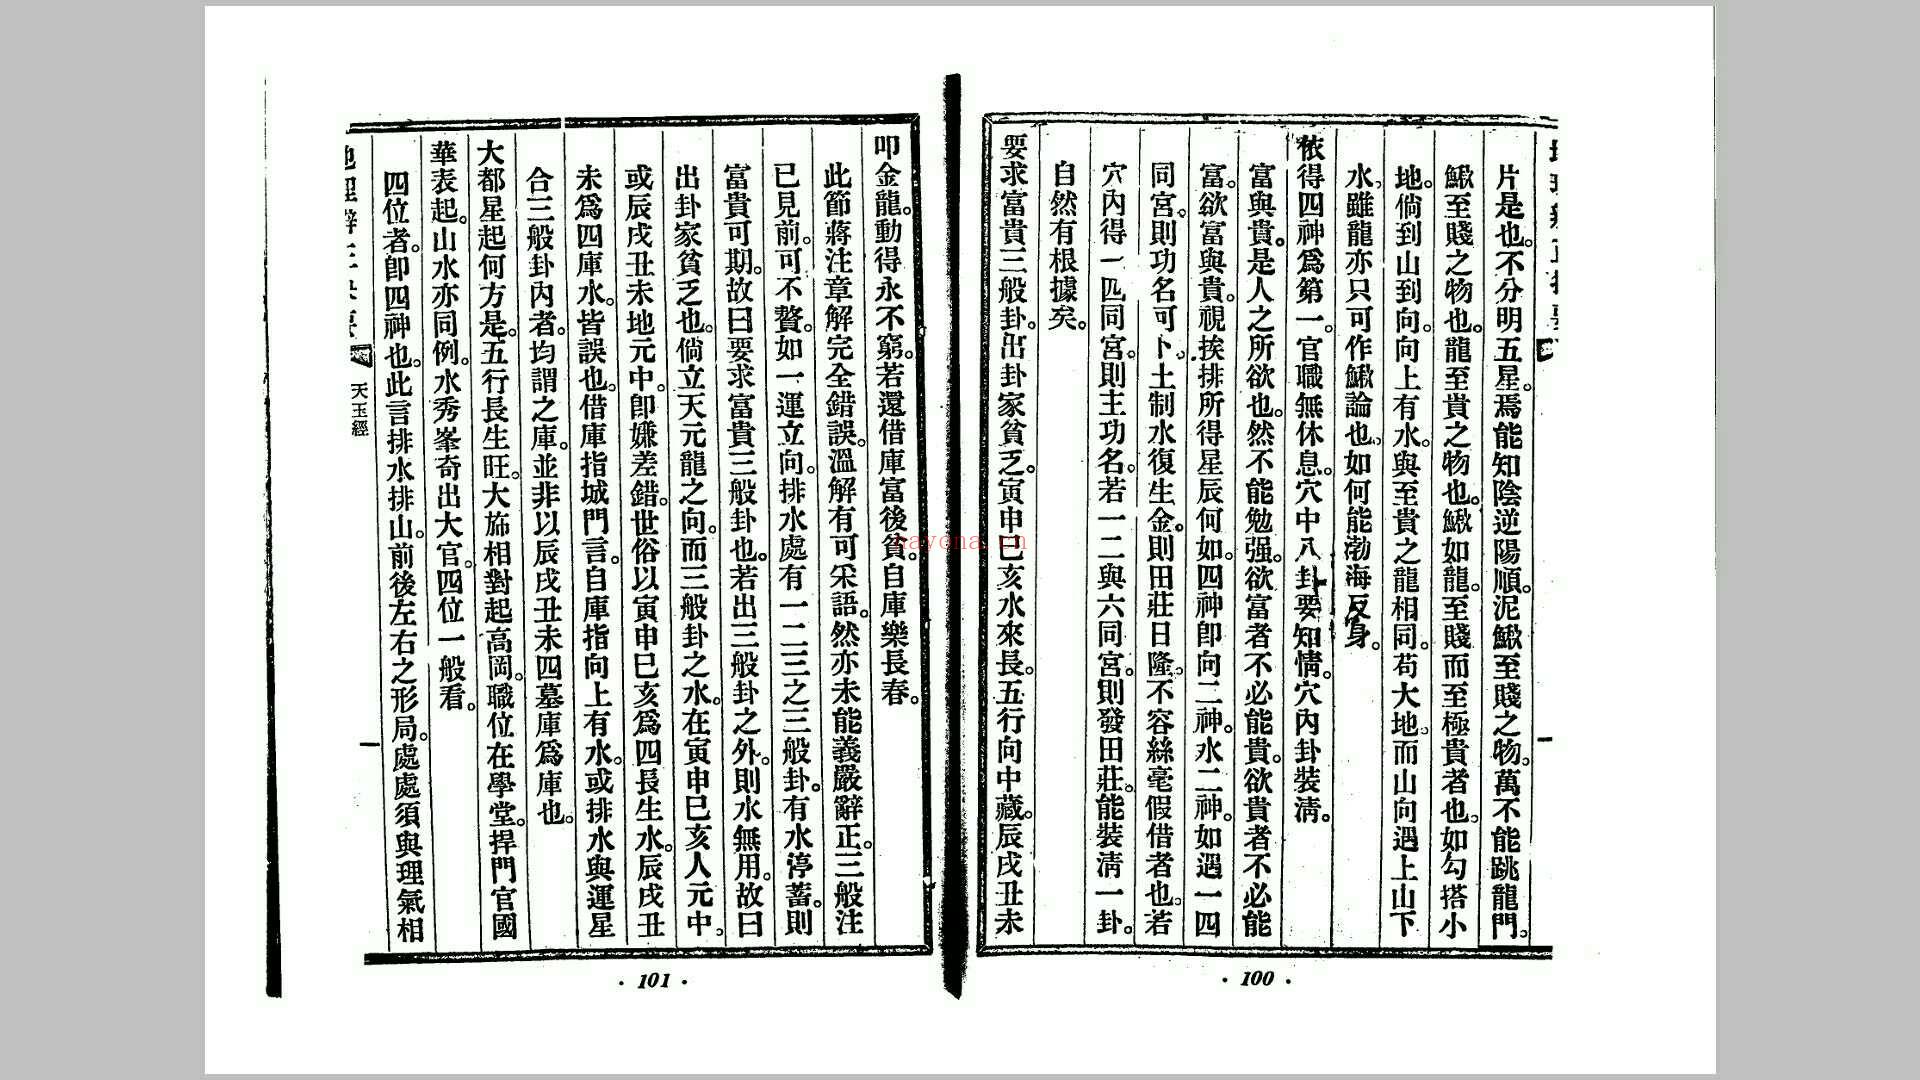 片是也。不分明五星。焉能知陰逆陽順。泥鰍至賤之物。萬不能跳龍門。
鰍至賤之物也。龍至貴之物也。鰍如龍。至賤而至極貴者也。如勾搭小
地。倘到山到向。向上有水。與至貴之龍相同。苟大地。而山向遇上山下
水。雖龍亦只可作鰍論也。如何能渤海反身。
依得四神爲第一。官職無休息。穴中八卦要知情。穴內卦裝淸。
富與貴。是人之所欲也。然不能勉强。欲富者不必能貴。欲貴者不必能
富。欲富與貴。視挨排所得星辰何如。四神卽向二神。水二神。如遇一四
同宮。則功名可卜。土制水復生金。則田莊日隆。不容絲毫假借者也。若
穴內得一四同宮。則主功名。若一二與六同宮。則發田莊。能裝淸一卦。
自然有根據矣。
要求富貴三般卦。出卦家貧乏。寅申巳亥水來長。五行向中藏。辰戌丑未
· 100 ·
叩金龍。動得永不窮。若還借庫富後貧。自庫樂長春。
此節蔣注章解完全錯誤。溫解有可采語。然亦未能義嚴辭正。三般注
已見前。可不贅。如一運立向。排水處有一二三之三般卦。有水停蓄。則
富貴可期。故曰要求富貴三般卦也。若出三般卦之外。則水無用。故曰
出卦家貧乏也。倘立天元龍之向。而三般卦之水。在寅申巳亥人元中。
或辰戌丑未地元中。卽嫌差錯。世俗以寅申巳亥爲四長生水。辰戌丑
未爲四庫水。皆誤也。借庫指城門言。自庫指向上有水。或排水與運星
合三般卦內者。均謂之庫。並非以辰戌丑未四墓庫爲庫也。
大都星起何方是。五行長生旺。大旆相對起高岡。職位在學堂。捍門官國
華表起。山水亦同例。水秀峯奇出大官。四位一般看。
四位者。卽四神也。此言排水排山。前後左右之形局。處處須與理氣相
天玉經
一
· 101 ·